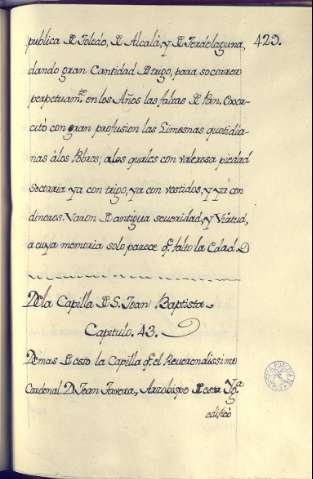 publica de Toledo, de Alcalá, y de Tordelaguna, 429.
dando gran Cantidad de trigo, para socorrer
perpetuam.te en los Años las faltas de Pan. Exer-
citó con gran profusion las Limosnas quotidia-
nas á los Pobres, a los quales con valerosa piedad
Socorria ya con trigo, ya con vestidos, y ya con
dineros. Varon de antigua severidad, y Virtud,
a cuya memoria solo parece q.e faltó la Edad.
De la Capilla de S. Juan Baptista.
Capitulo. 43.
Demas de esto la Capilla q.e el Reverendissimo
Cardenal D. Juan Tavera, Arzobispo de esta Yg.a
edificó